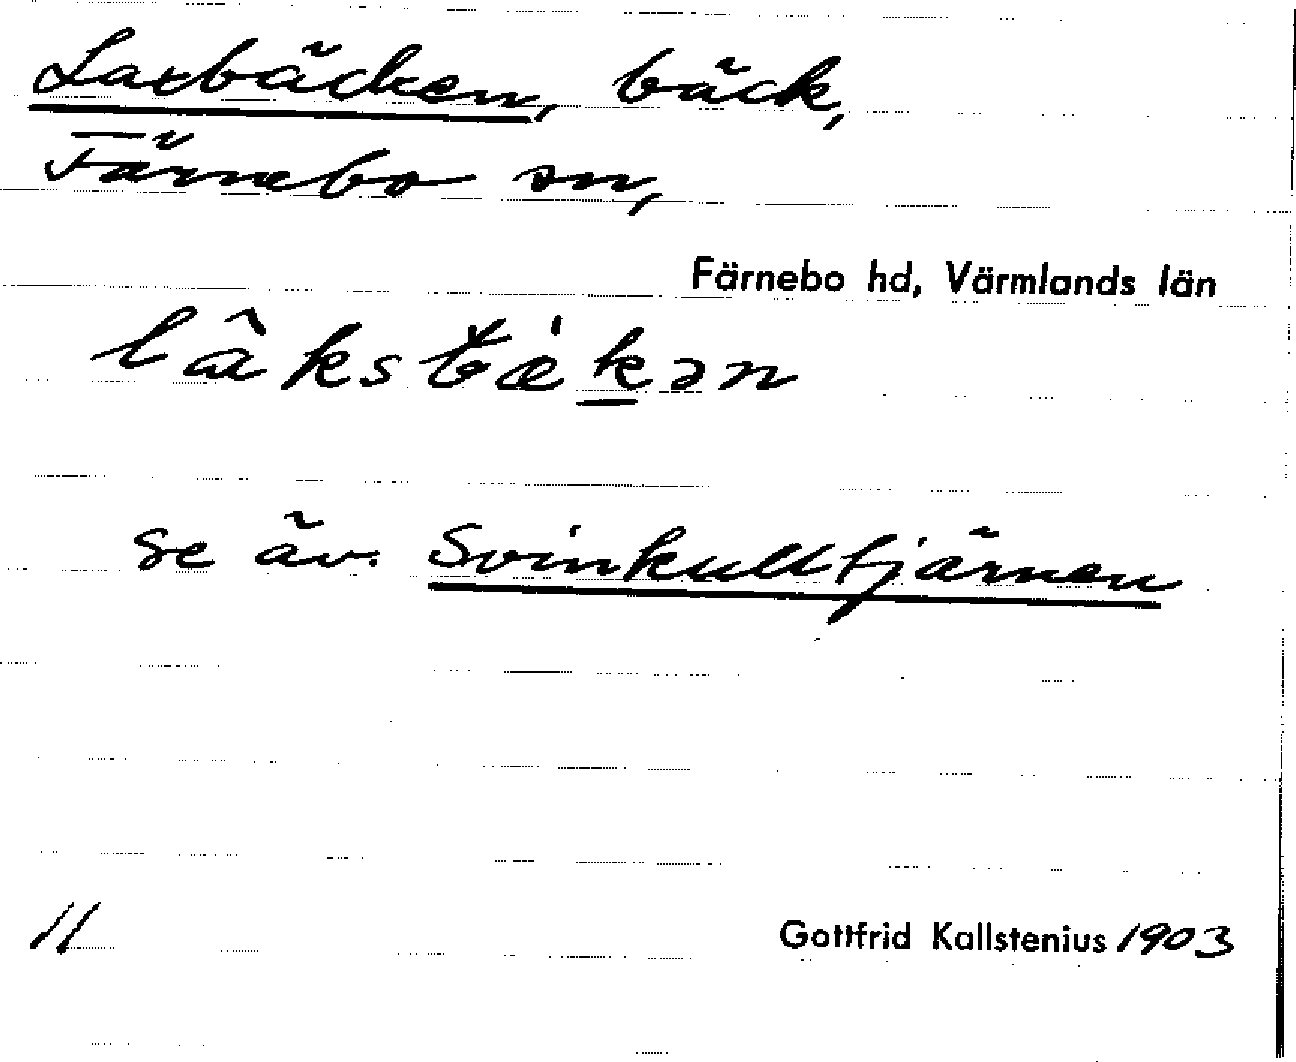 Laxbäcken, bäck,
Färnebo sn,
Färnebo hd, Värmlands län
lâksbækən
se äv. Svinkulltjärnen
11
Gottfrid Kallstenius 1903